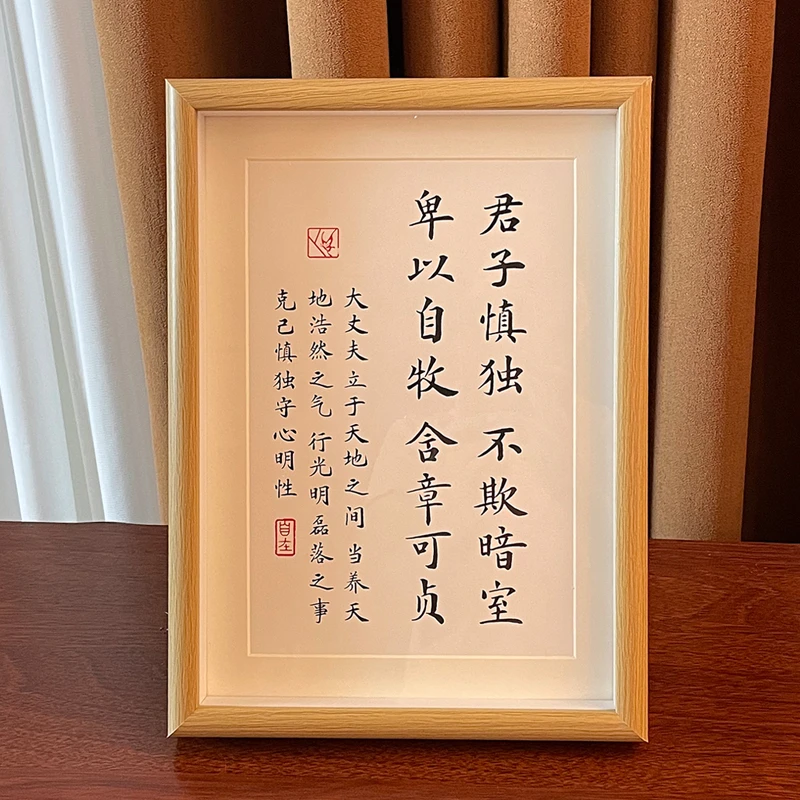 君子慎独 不欺暗室
卑以自牧 含章可贞
大丈夫立于天地之间 当养天
地浩然之气 行光明磊落之事
克己慎独守心明性